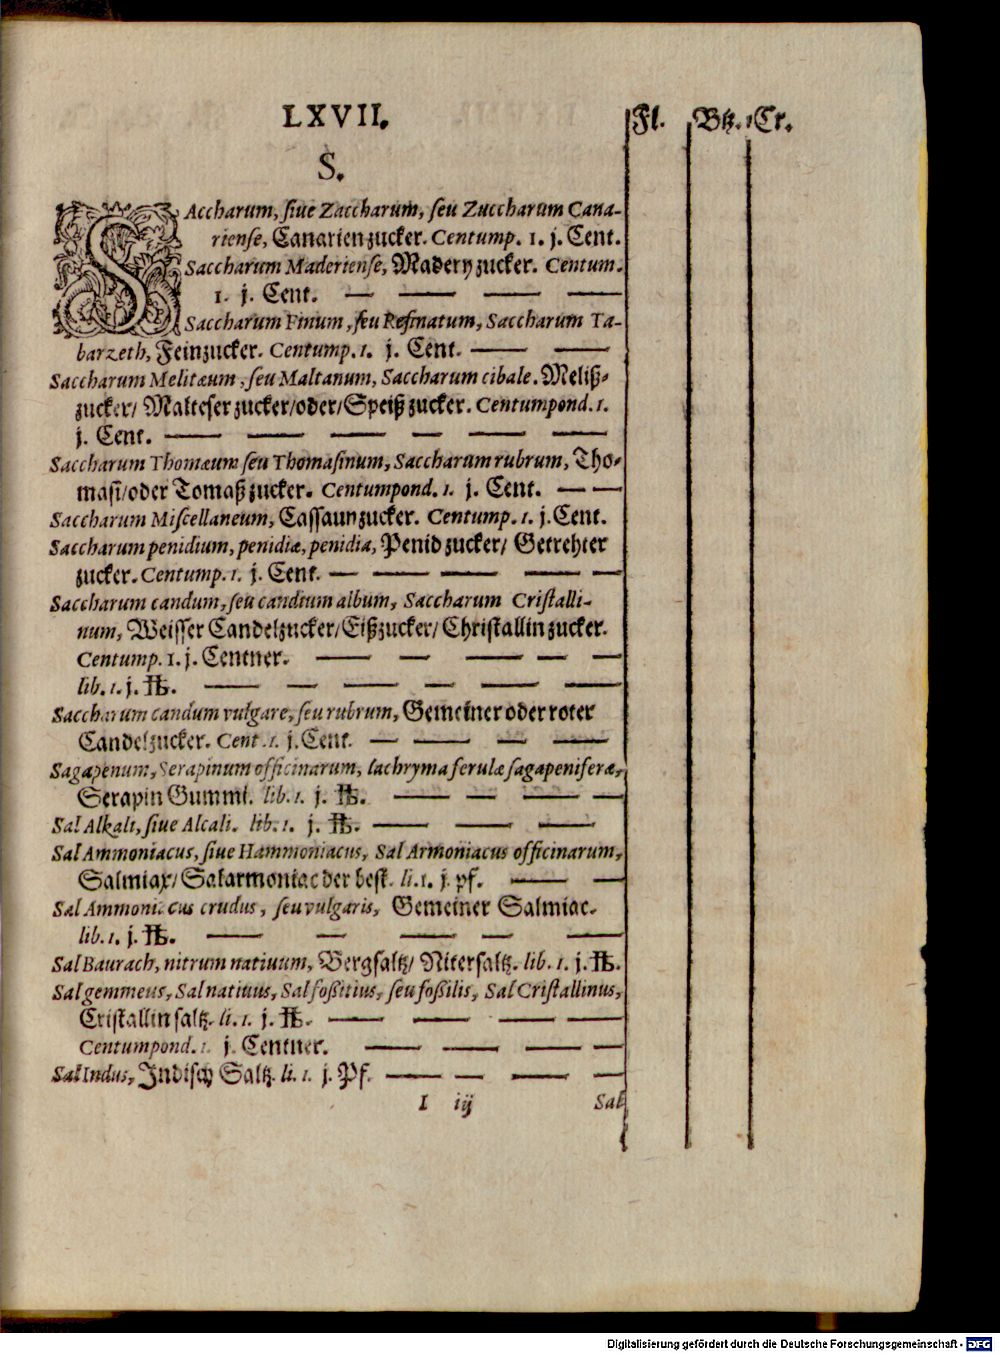 LXVII.
Fl. Btz. Cr.
S.
SAccharum, ſiue Zaccharum, ſeu Zuccharum Cana-
rienſe, Canarienzucker. Centump. 1. j. Cent.
Saccharum Maderienſe, Maderyzucker. Centum.
1. j. Cent. — — — —
Saccharum Finum, ſeu Refinatum, Saccharum Ta-
barzeth, Feinzucker. Centump. 1. j. Cent. — —
Saccharum Melitæum, ſeu Maltanum, Saccharum cibale. Meliß-
zucker/ Malteſer zucker/ oder/ Speiß zucker. Centumpond. 1.
j. Cent. — — — — — —
Saccharum Thomæum ſeu Thomaſinum, Saccharum rubrum, Tho-
maſi/ oder Tomaß zucker. Centumpond. 1. j. Cent. — —
Saccharum Miſcellaneum, Caſſaunzucker. Centump. 1. j. Cent.
Saccharum penidium, penidiæ, penidia, Penid zucker/ Getrehter
zucker. Centump. 1. j. Cent. — — — — —
Saccharum candum, ſeu candium album, Saccharum Criſtalli-
num, Weiſſer Candelzucker/ Eißzucker/ Chriſtallin zucker.
Centump. 1. j. Centner. — — — — —
lib. 1. j. ℔. — — — — — —
Saccharum candum vulgare, ſeu rubrum, Gemeiner oder roter
Candelzucker. Cent. 1. j. Cent. — — — —
Sagapenum, Serapinum officinarum, lachryma ferulæ ſagapeniferæ,
Serapin Gummi. lib. 1. j. ℔. — — — —
Sal Alkali, ſiue Alcali. lib. 1. j. ℔. — — —
Sal Ammoniacus, ſiue Hammoniacus, Sal Armoniacus officinarum,
Salmiax/ Salarmoniac der beſt. li. 1. j. pf. — —
Sal Ammoniacus crudus, ſeu vulgaris, Gemeiner Salmiac.
lib. 1. j. ℔. — — — — —
Sal Baurach, nitrum natiuum, Bergſaltz/ Niterſaltz. lib. 1. j. ℔.
Sal gemmeus, Sal natiuus, Sal foßitius, ſeu foßilis, Sal Criſtallinus,
Criſtallin ſaltz. li. 1. j. ℔. — — — —
Centumpond. 1. j. Centner. — — — —
Sal Indus, Indiſch Saltz. li. 1. j. Pf. — — — —
I iij Sal
Digitalisierung gefördert durch die Deutsche Forschungsgemeinschaft - DFG